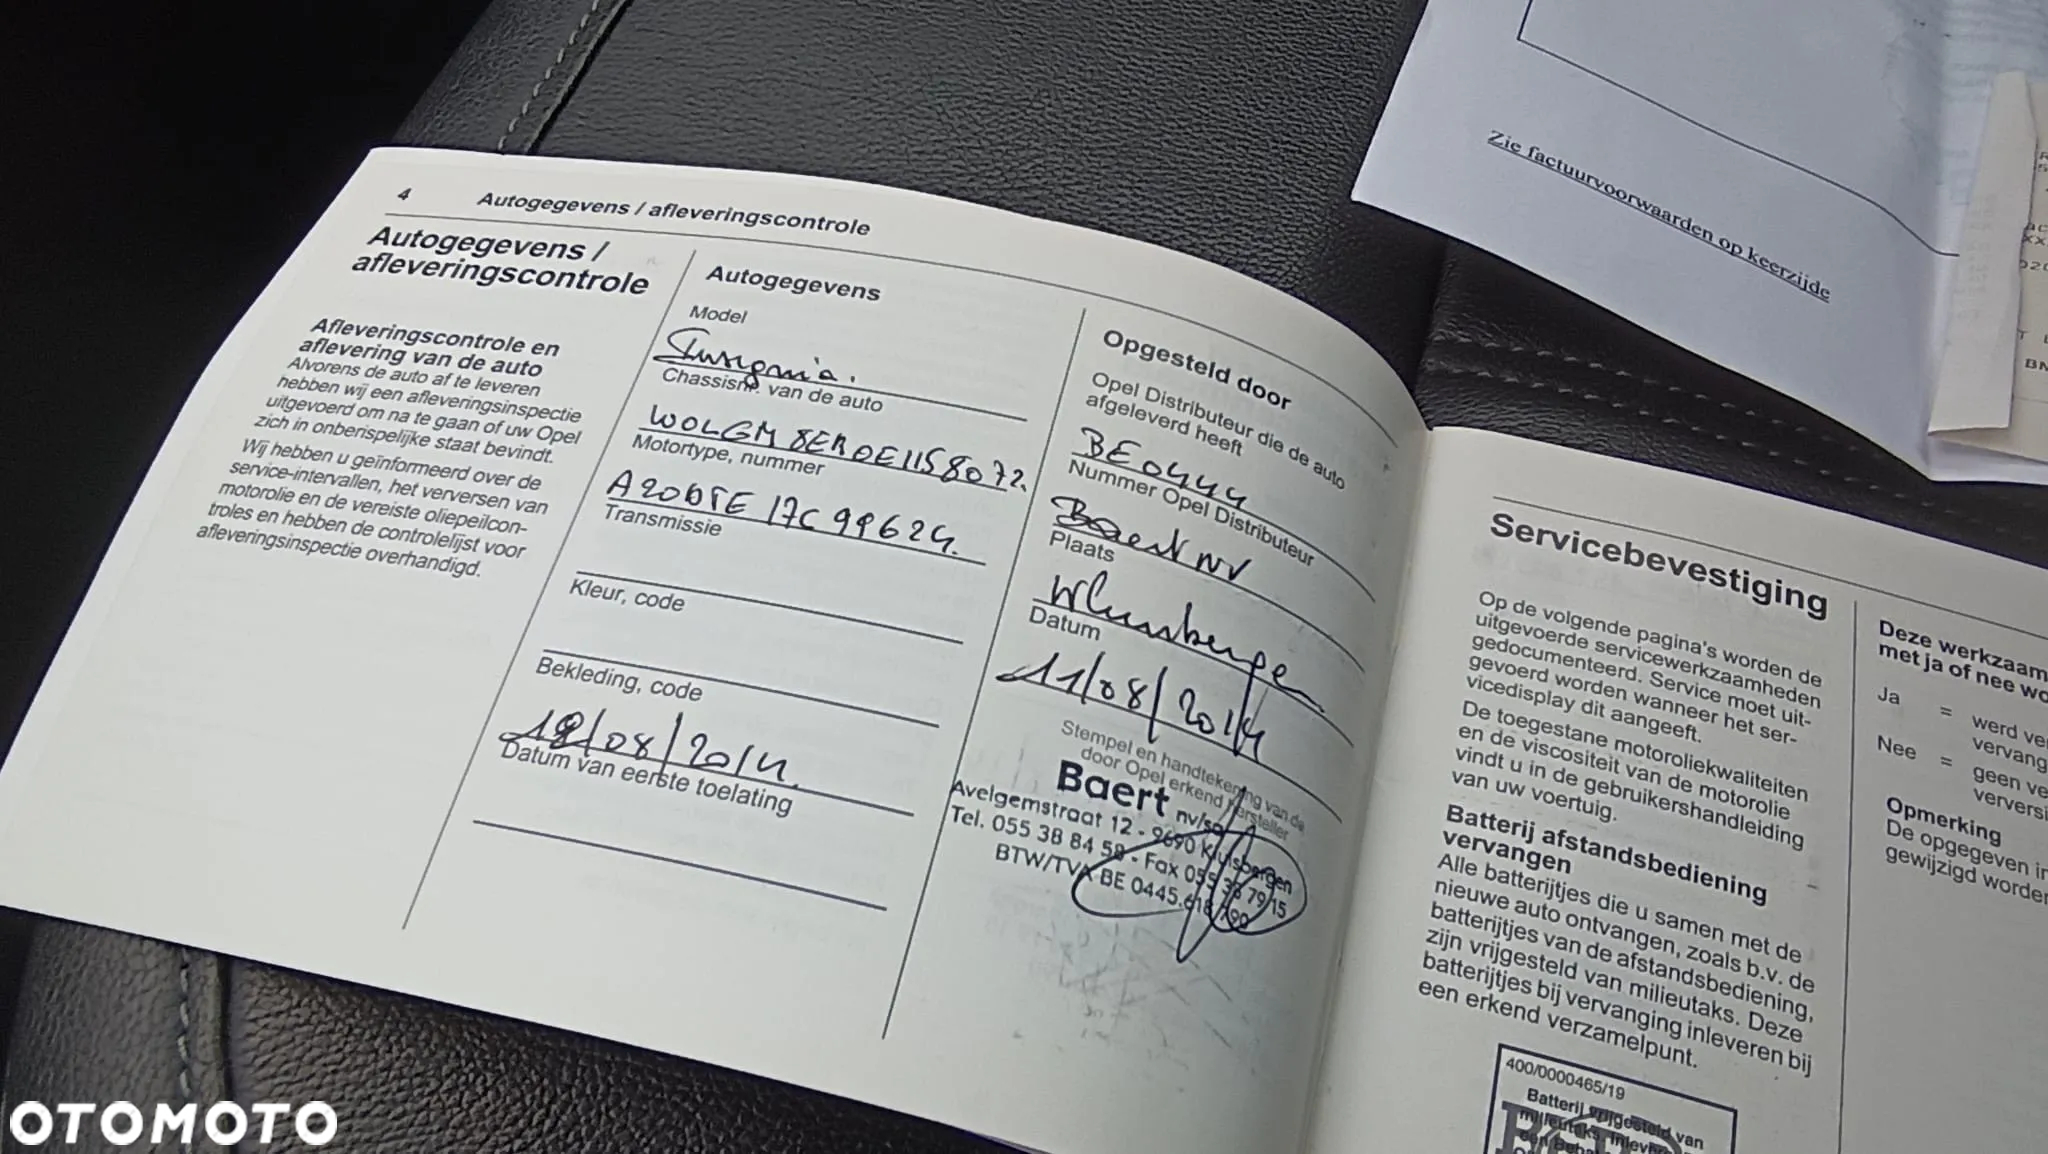 4 Autogegevens / afleveringscontrole
Autogegevens /
afleveringscontrole
Afleveringscontrole en
aflevering van de auto
Alvorens de auto af te leveren
hebben wij een afleveringsinspectie
uitgevoerd om na te gaan of uw Opel
zich in onberispelijke staat bevindt.
Wij hebben u geïnformeerd over de
service-intervallen, het verversen van
motorolie en de vereiste oliepeilcon-
troles en hebben de controlelijst voor
afleveringsinspectie overhandigd.
Autogegevens
Model
Insignia.
Chassisnr. van de auto
WOLGM8EROE1158072.
Motortype, nummer
A20DTE 17C99624.
Transmissie
Kleur, code
Bekleding, code
/08/2014.
Datum van eerste toelating
Opgesteld door
Opel Distributeur die de auto
afgeleverd heeft
BE0444
Nummer Opel Distributeur
Baert NV
Plaats
Kluisbergen
Datum
11/08/2014
Stempel en handtekening van de
door Opel erkend hersteller
Baert nv/sa
Avelgemstraat 12 - 9690 Kluisbergen
Tel. 055 38 84 58 - Fax 055 38 79 15
BTW/TVA BE 0445.618.790
Servicebevestiging
Op de volgende pagina's worden de
uitgevoerde servicewerkzaamheden
gedocumenteerd. Service moet uit-
gevoerd worden wanneer het ser-
vicedisplay dit aangeeft.
De toegestane motoroliekwaliteiten
en de viscositeit van de motorolie
vindt u in de gebruikershandleiding
van uw voertuig.
Batterij afstandsbediening
vervangen
Alle batterijtjes die u samen met de
nieuwe auto ontvangen, zoals b.v. de
batterijtjes van de afstandsbediening,
zijn vrijgesteld van milieutaks. Deze
batterijtjes bij vervanging inleveren bij
een erkend verzamelpunt.
400/0000465/19
Batterij vrijgesteld van
milieutaks. Inlever
Deze werkzaam
met ja of nee wo
Ja = werd ve
vervang
Nee = geen ve
verversi
Opmerking
De opgegeven in
gewijzigd worde
Zie factuurvoorwaarden op keerzijde
OTOMOTO